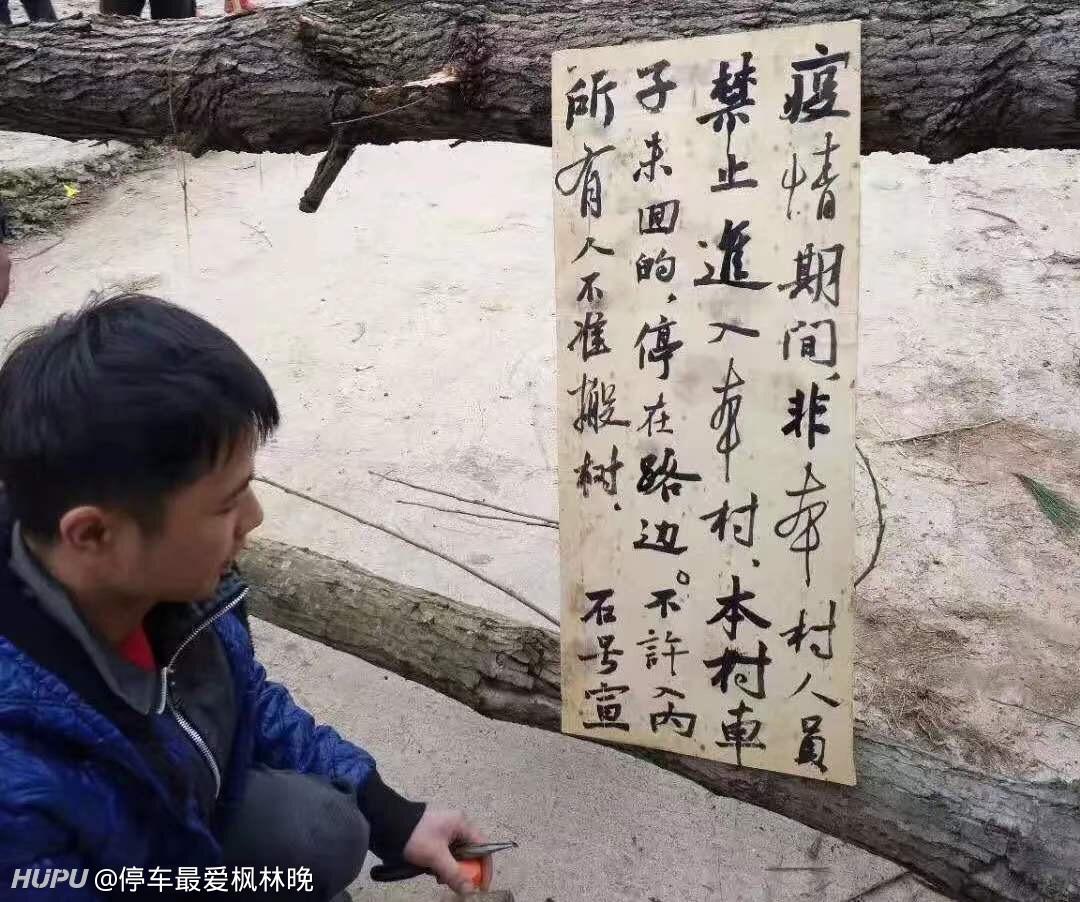 疫情期间,非本村人员
禁止進入本村、本村車
子未回的,停在路边。不許入内
所有人不准搬树、
石号宣
HUPU @停车最爱枫林晚